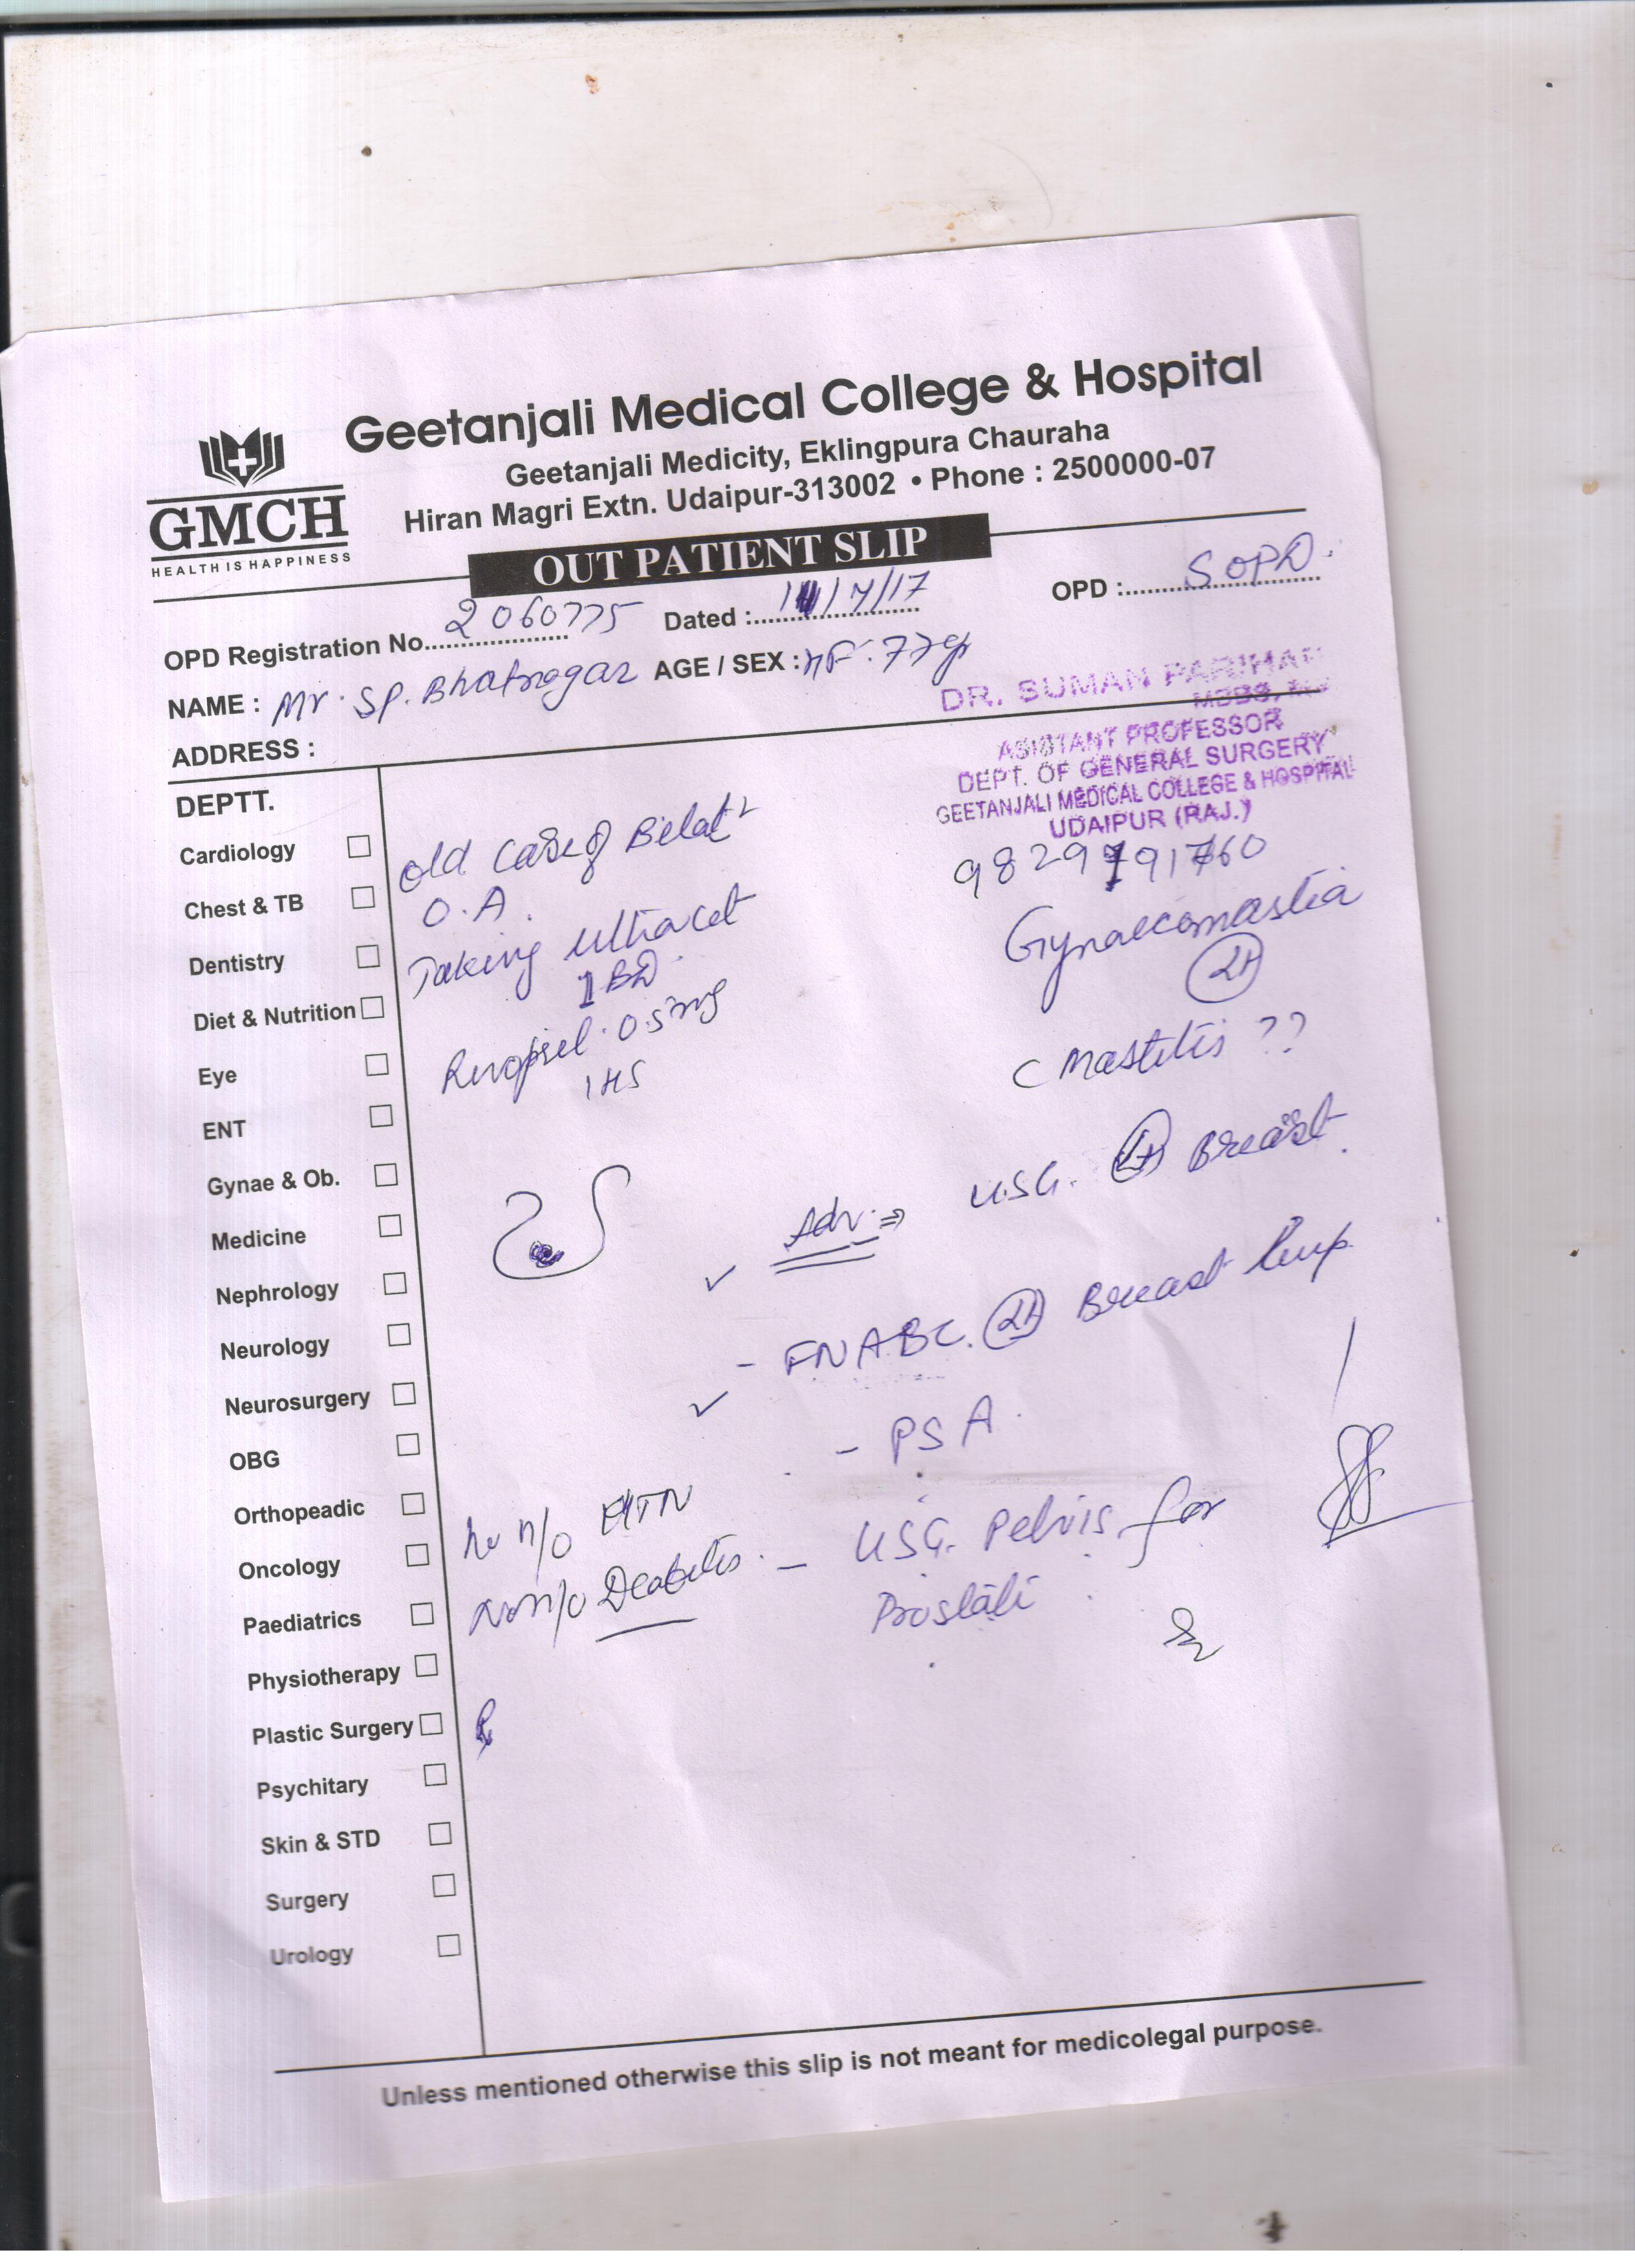 Geetanjali Medical College & Hospital
Geetanjali Medicity, Eklingpura Chauraha
Hiran Magri Extn. Udaipur-313002 • Phone : 2500000-07
GMCH
HEALTH IS HAPPINESS
OUT PATIENT SLIP
OPD Registration No. 2060775 Dated : /7/17 OPD : SOPD.
NAME : Mr. SP. Bhatnagar AGE / SEX : 77yr
ADDRESS :
DR. SUMAN PARIHAR
MBBS,
ASISTANT PROFESSOR
DEPT. OF GENERAL SURGERY
GEETANJALI MEDICAL COLLEGE & HOSPITAL
UDAIPUR (RAJ.)
DEPTT.
Cardiology
Chest & TB
Dentistry
Diet & Nutrition
Eye
ENT
Gynae & Ob.
Medicine
Nephrology
Neurology
Neurosurgery
OBG
Orthopeadic
Oncology
Paediatrics
Physiotherapy
Plastic Surgery
Psychitary
Skin & STD
Surgery
Urology
Old case of Bilat
O.A.
Taking Ultracet
1 BD.
0.5mg
1 HS
No h/o HTN
No h/o Diabetis.
Rx
Gynaecomastia
Lt
c Mastitis ??
Adv. ⇒ U.S.G. Lt Breast.
- FNABC. Lt Breast lump
- PSA.
- USG. Pelvis for
Prostate
Unless mentioned otherwise this slip is not meant for medicolegal purpose.